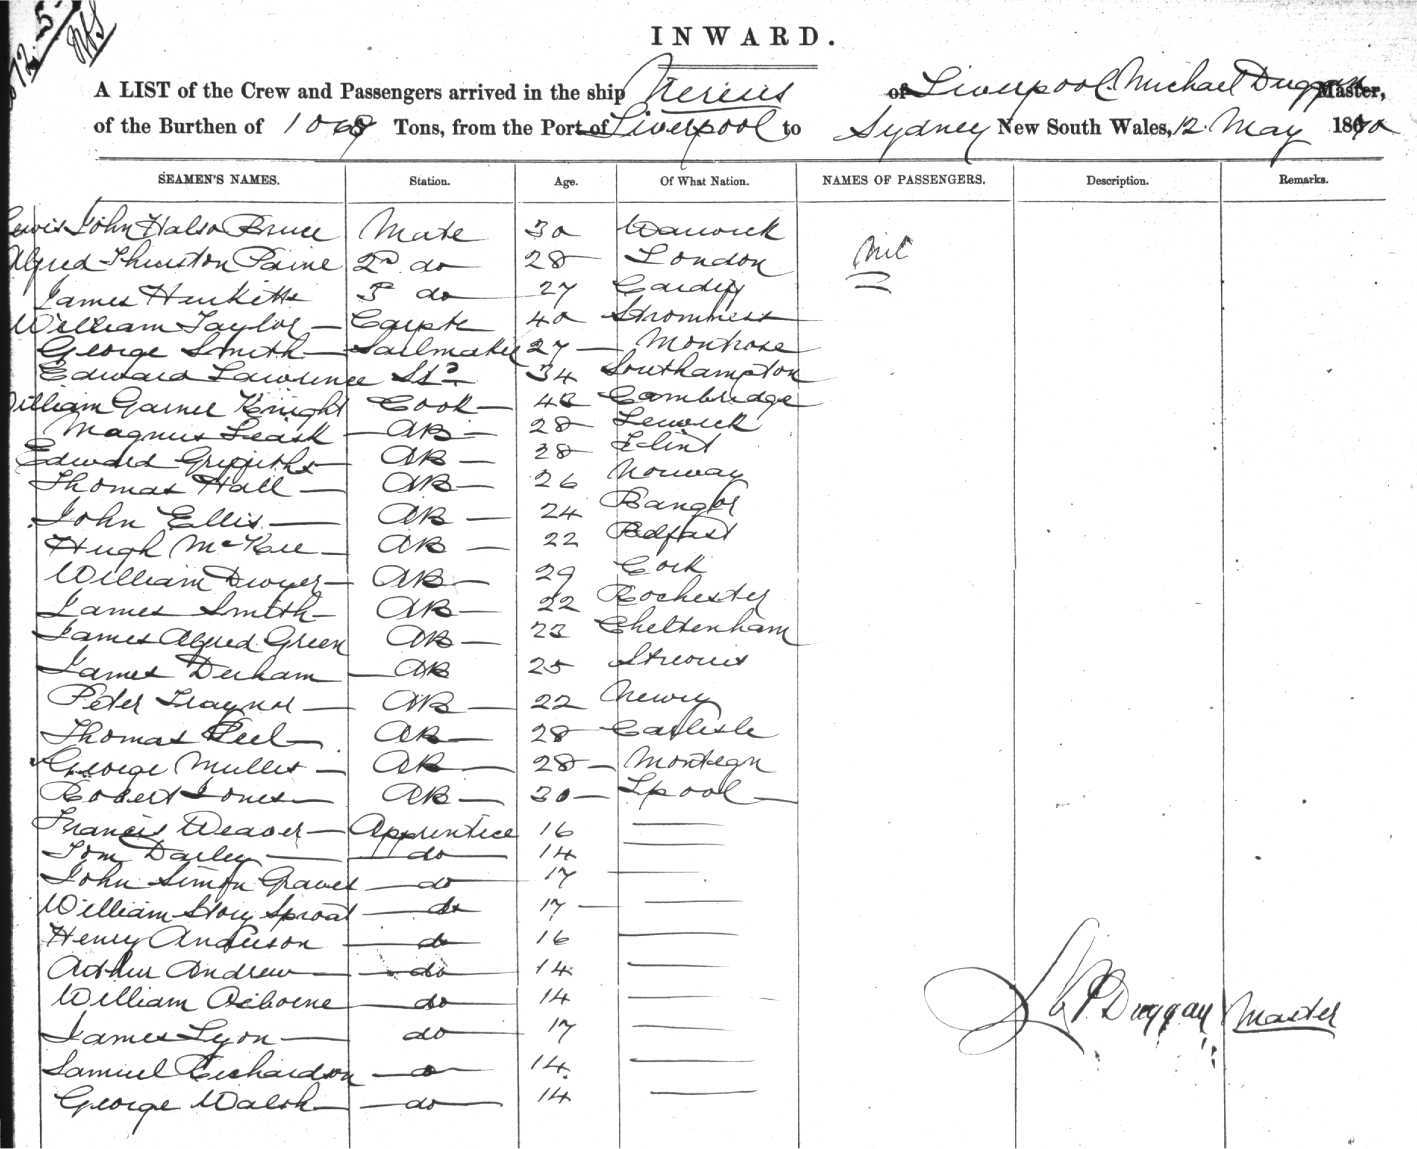 72 5
INWARD.
A LIST of the Crew and Passengers arrived in the ship Nereus of Liverpool, Michael Duggan Master,
of the Burthen of Tons, from the Port of Liverpool to Sydney New South Wales, 12 May 18
SEAMEN'S NAMES. Station. Age. Of What Nation. NAMES OF PASSENGERS. Description. Remarks.
Lewis John Halso Bruce Mate 30 Warwick
Alfred Thurston Paine 2nd do 28 London nil
James 3 do 27 Cardiff
William Taylor Carptr 40 Stromness
George Smith Sailmaker 27 Montrose
Edward Lawrence Std 34 Southampton
William Garner Knight Cook Cambridge
Magnus Leask AB 28 Lerwick
Edward Griffiths AB 28 Flint
Thomas Hall AB 26 Norway
John Ellis AB 24 Bangor
Hugh McKee AB 22 Belfast
William Dwyer AB 29 Cork
James Smith AB 22 Rochester
James Alfred Green AB 23 Cheltenham
James Derham AB 25
Peter Traynor AB 22 Newry
Thomas Peel AB 28 Carlisle
George AB 28
Robert Jones AB 30 Lpool
Francis Weaver Apprentice 16
Tom Darley do 14
John Simon Graves do 17
William Story Sproat do 17
Henry Anderson do 16
Arthur Andrew do 14
William Osborne do 14
James Lyon do 17
Samuel Richardson do 14
George Walsh do 14
Duggan Master